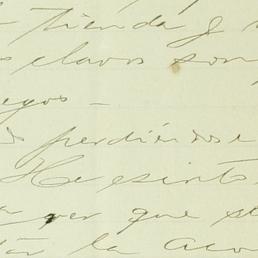 tienda y
clavos son
egos —
perdiéndose
He escrito
ver que se
la aco